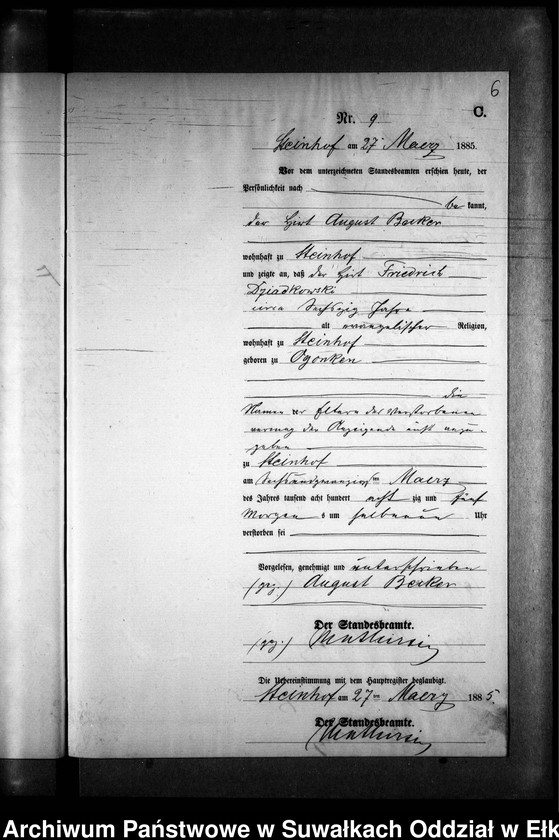 6
C.
Nr. 9
Steinhof am 27 Maerz 1885.
Vor dem unterzeichneten Standesbeamten erschien heute, der
Persönlichkeit nach
be kannt,
der Hirt August Becker
wohnhaft zu Steinhof
und zeigte an, daß der Hirt Friedrich
Dziadkowski
circa Sechszig Jahre
alt evangelischer Religion,
wohnhaft zu Steinhof
geboren zu Ogonken
die
Namen der Eltern des Verstorbenen
vermag der Anzeigende nicht anzu-
geben
zu Steinhof
am Sechsundzwanzigsten Maerz
des Jahres tausend acht hundert acht zig und fünf
Morgens um halbneun Uhr
verstorben sei
Vorgelesen, genehmigt und unterschrieben
(gez.) August Becker
Der Standesbeamte.
(gez.)
Die Uebereinstimmung mit dem Hauptregister beglaubigt.
Steinhof am 27ten Maerz 1885.
Der Standesbeamte.
Archiwum Państwowe w Suwałkach Oddział w Ełk